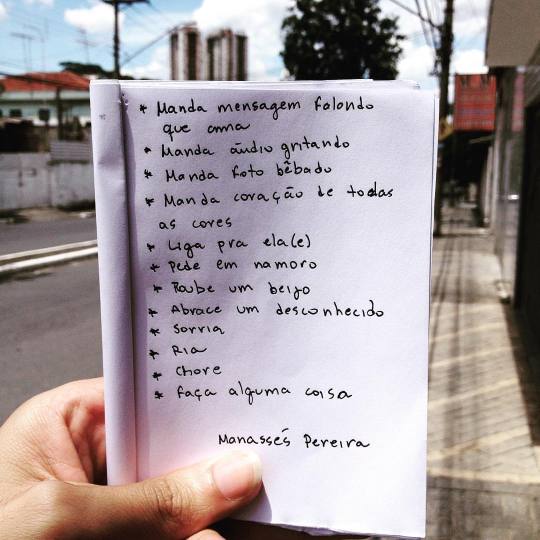 * Manda mensagem falando
que ama
* Manda áudio gritando
* Manda foto bêbado
* Manda coração de todas
as cores
* Liga pra ela(e)
* Pede em namoro
* Roube um beijo
* Abrace um desconhecido
* Sorria
* Ria
* Chore
* Faça alguma coisa
Manassés Pereira